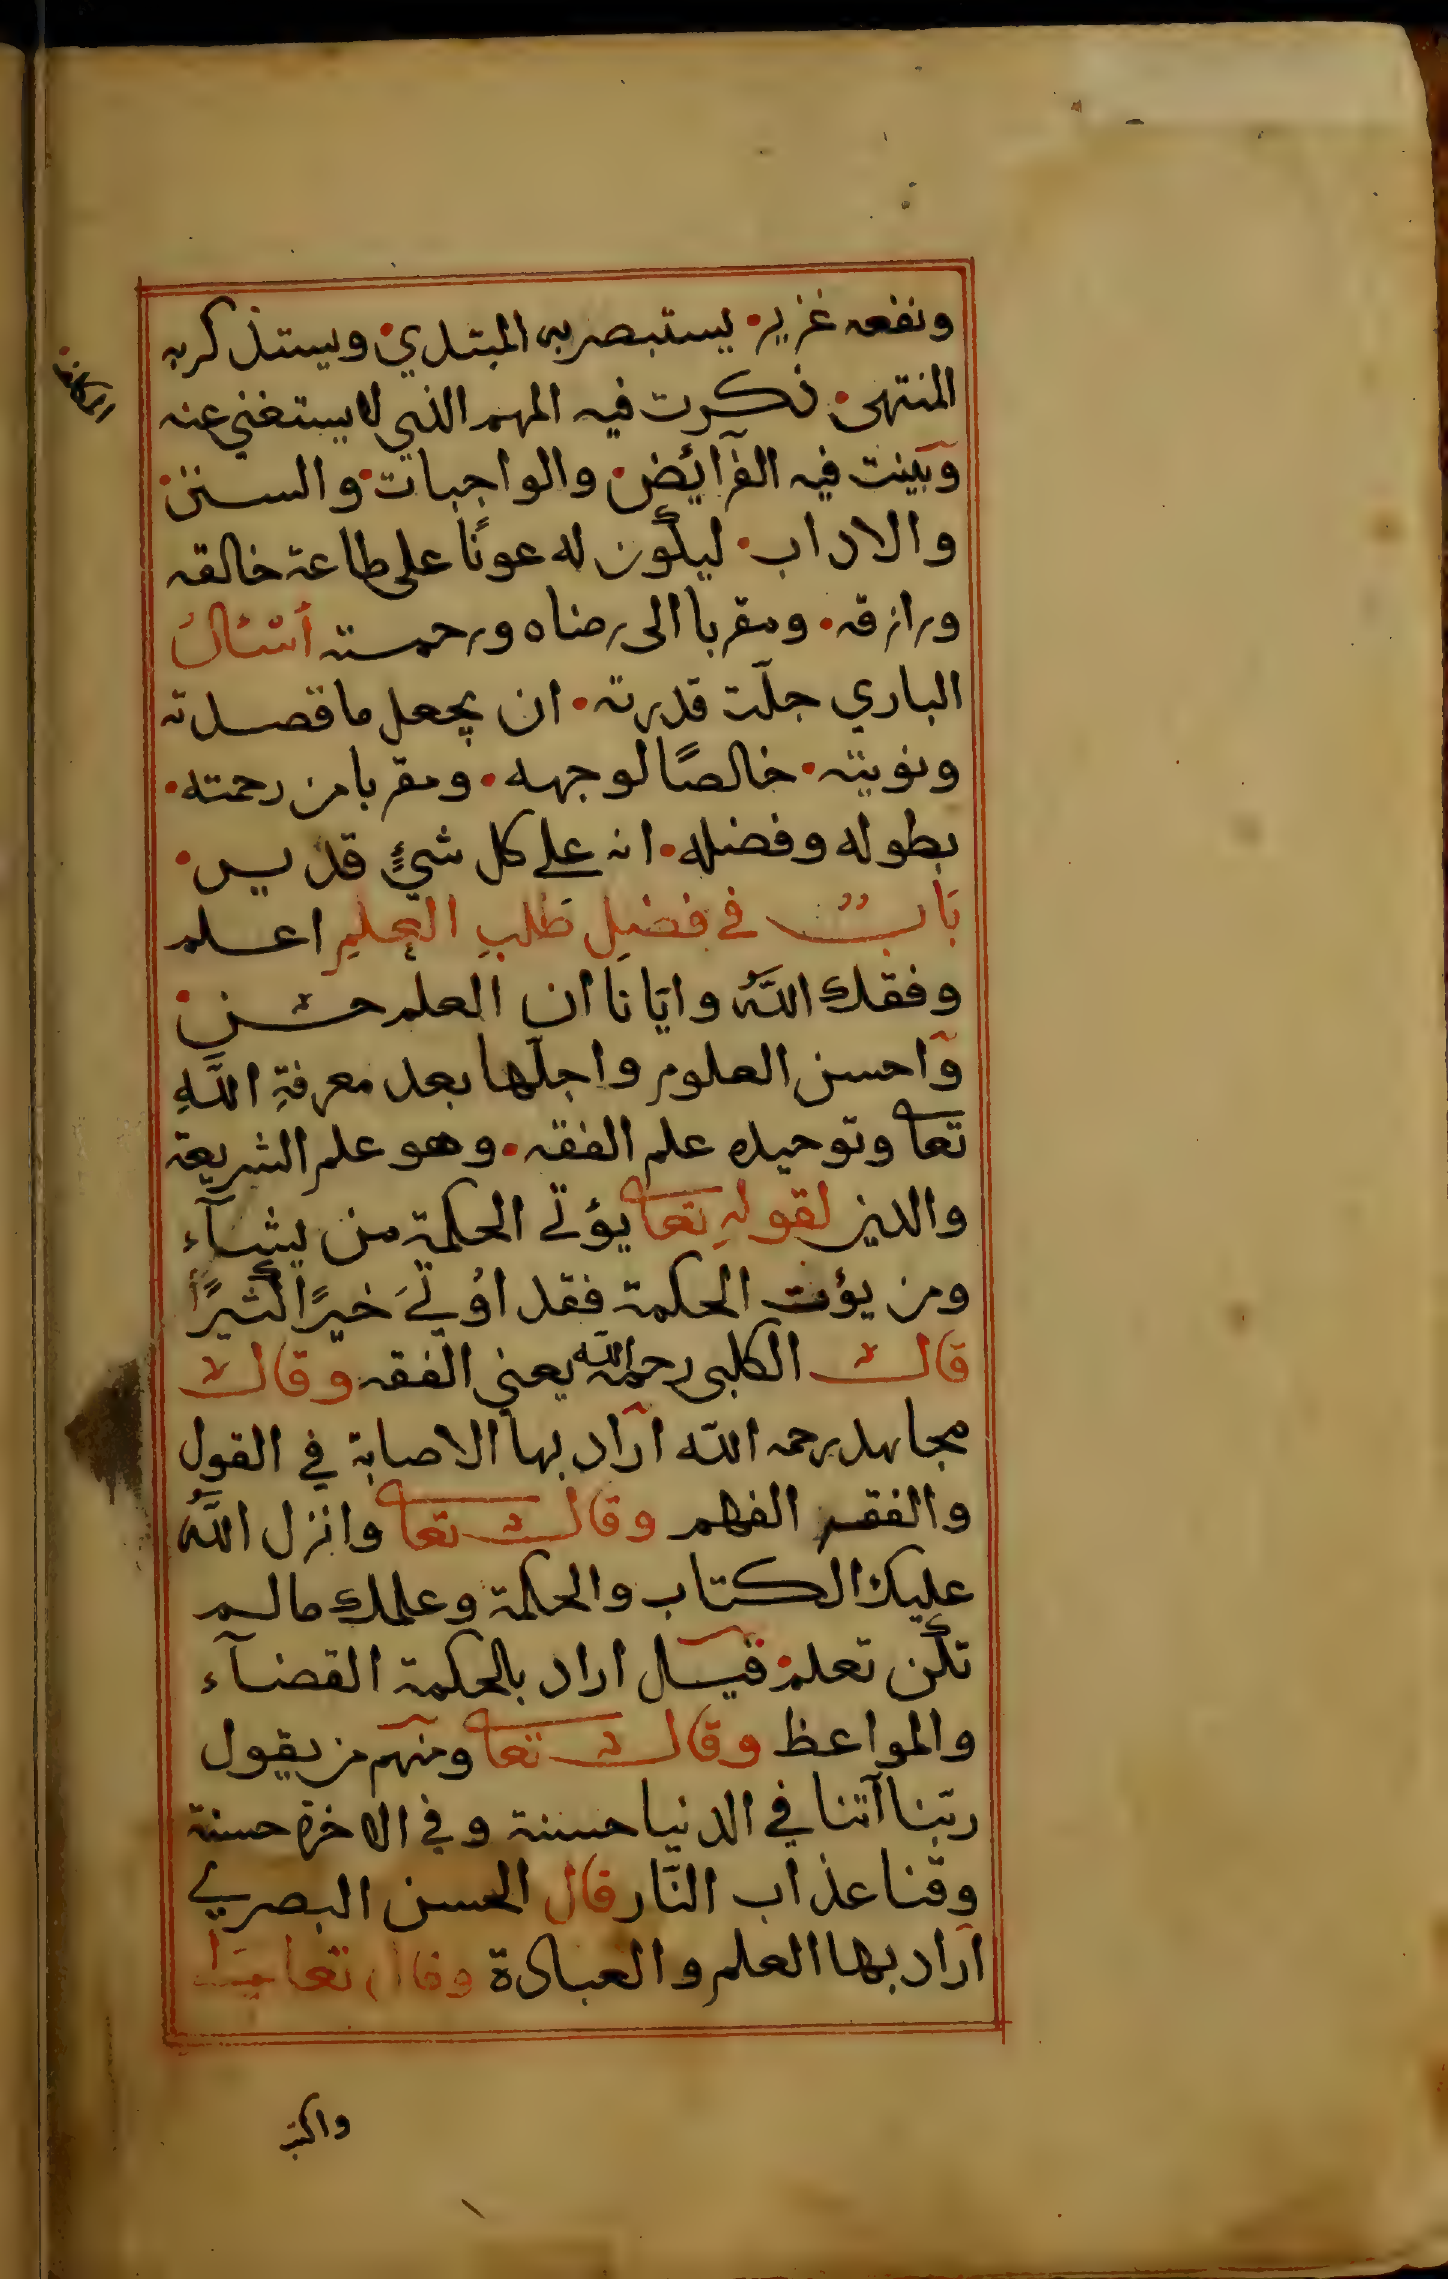 ونفعه غزير• يستبصر به المبتدي• ويستذكر به
المنتهى• ذكرت فيه المهم الذي لا يستغني عنه
وبينت فيه الفرآئض• والواجبات• والسنن•
والاداب• ليكون له عونًا على طاعة خالقه
ورازقه• ومقربا الى رضاه ورحمته أسئالُ
الباري جلّت قدرته• ان يجعل ما قصدته
ونويته• خالصًا لوجهه• ومقربا من رحمته•
بطوله وفضله• انه على كل شيءٍ قدير•
بَابٌ في فضلِ طَلبِ العِلمِ اعلم
وفقك اللهُ وايانا ان العلم حسن•
واحسن العلوم واجلّها بعد معرفةِ اللهِ
تعا وتوحيده علم الفقه• وهو علم الشريعة
والدين لقولهِ تعا يؤتي الحكمة من يشآء
ومن يؤت الحكمة فقد اوُتيَ خيرًا كثيرًا
قال الكلبى رحمه الله يعني الفقه وقال
مجاهد رحمه الله اراد بها الاصابة في القول
والفقه الفهم وقال تعا وانزل اللهُ
عليك الكتاب والحكمة وعلمك ما لم
تكن تعلم• قيل اراد بالحكمة القضآء
والمواعظ وقال تعا ومنهم من يقول
ربّنا آتنا في الدنيا حسنة وفي الاخرة حسنة
وقنا عذاب النّار قال الحسن البصري
اراد بها العلم والعبادة وقال تعا